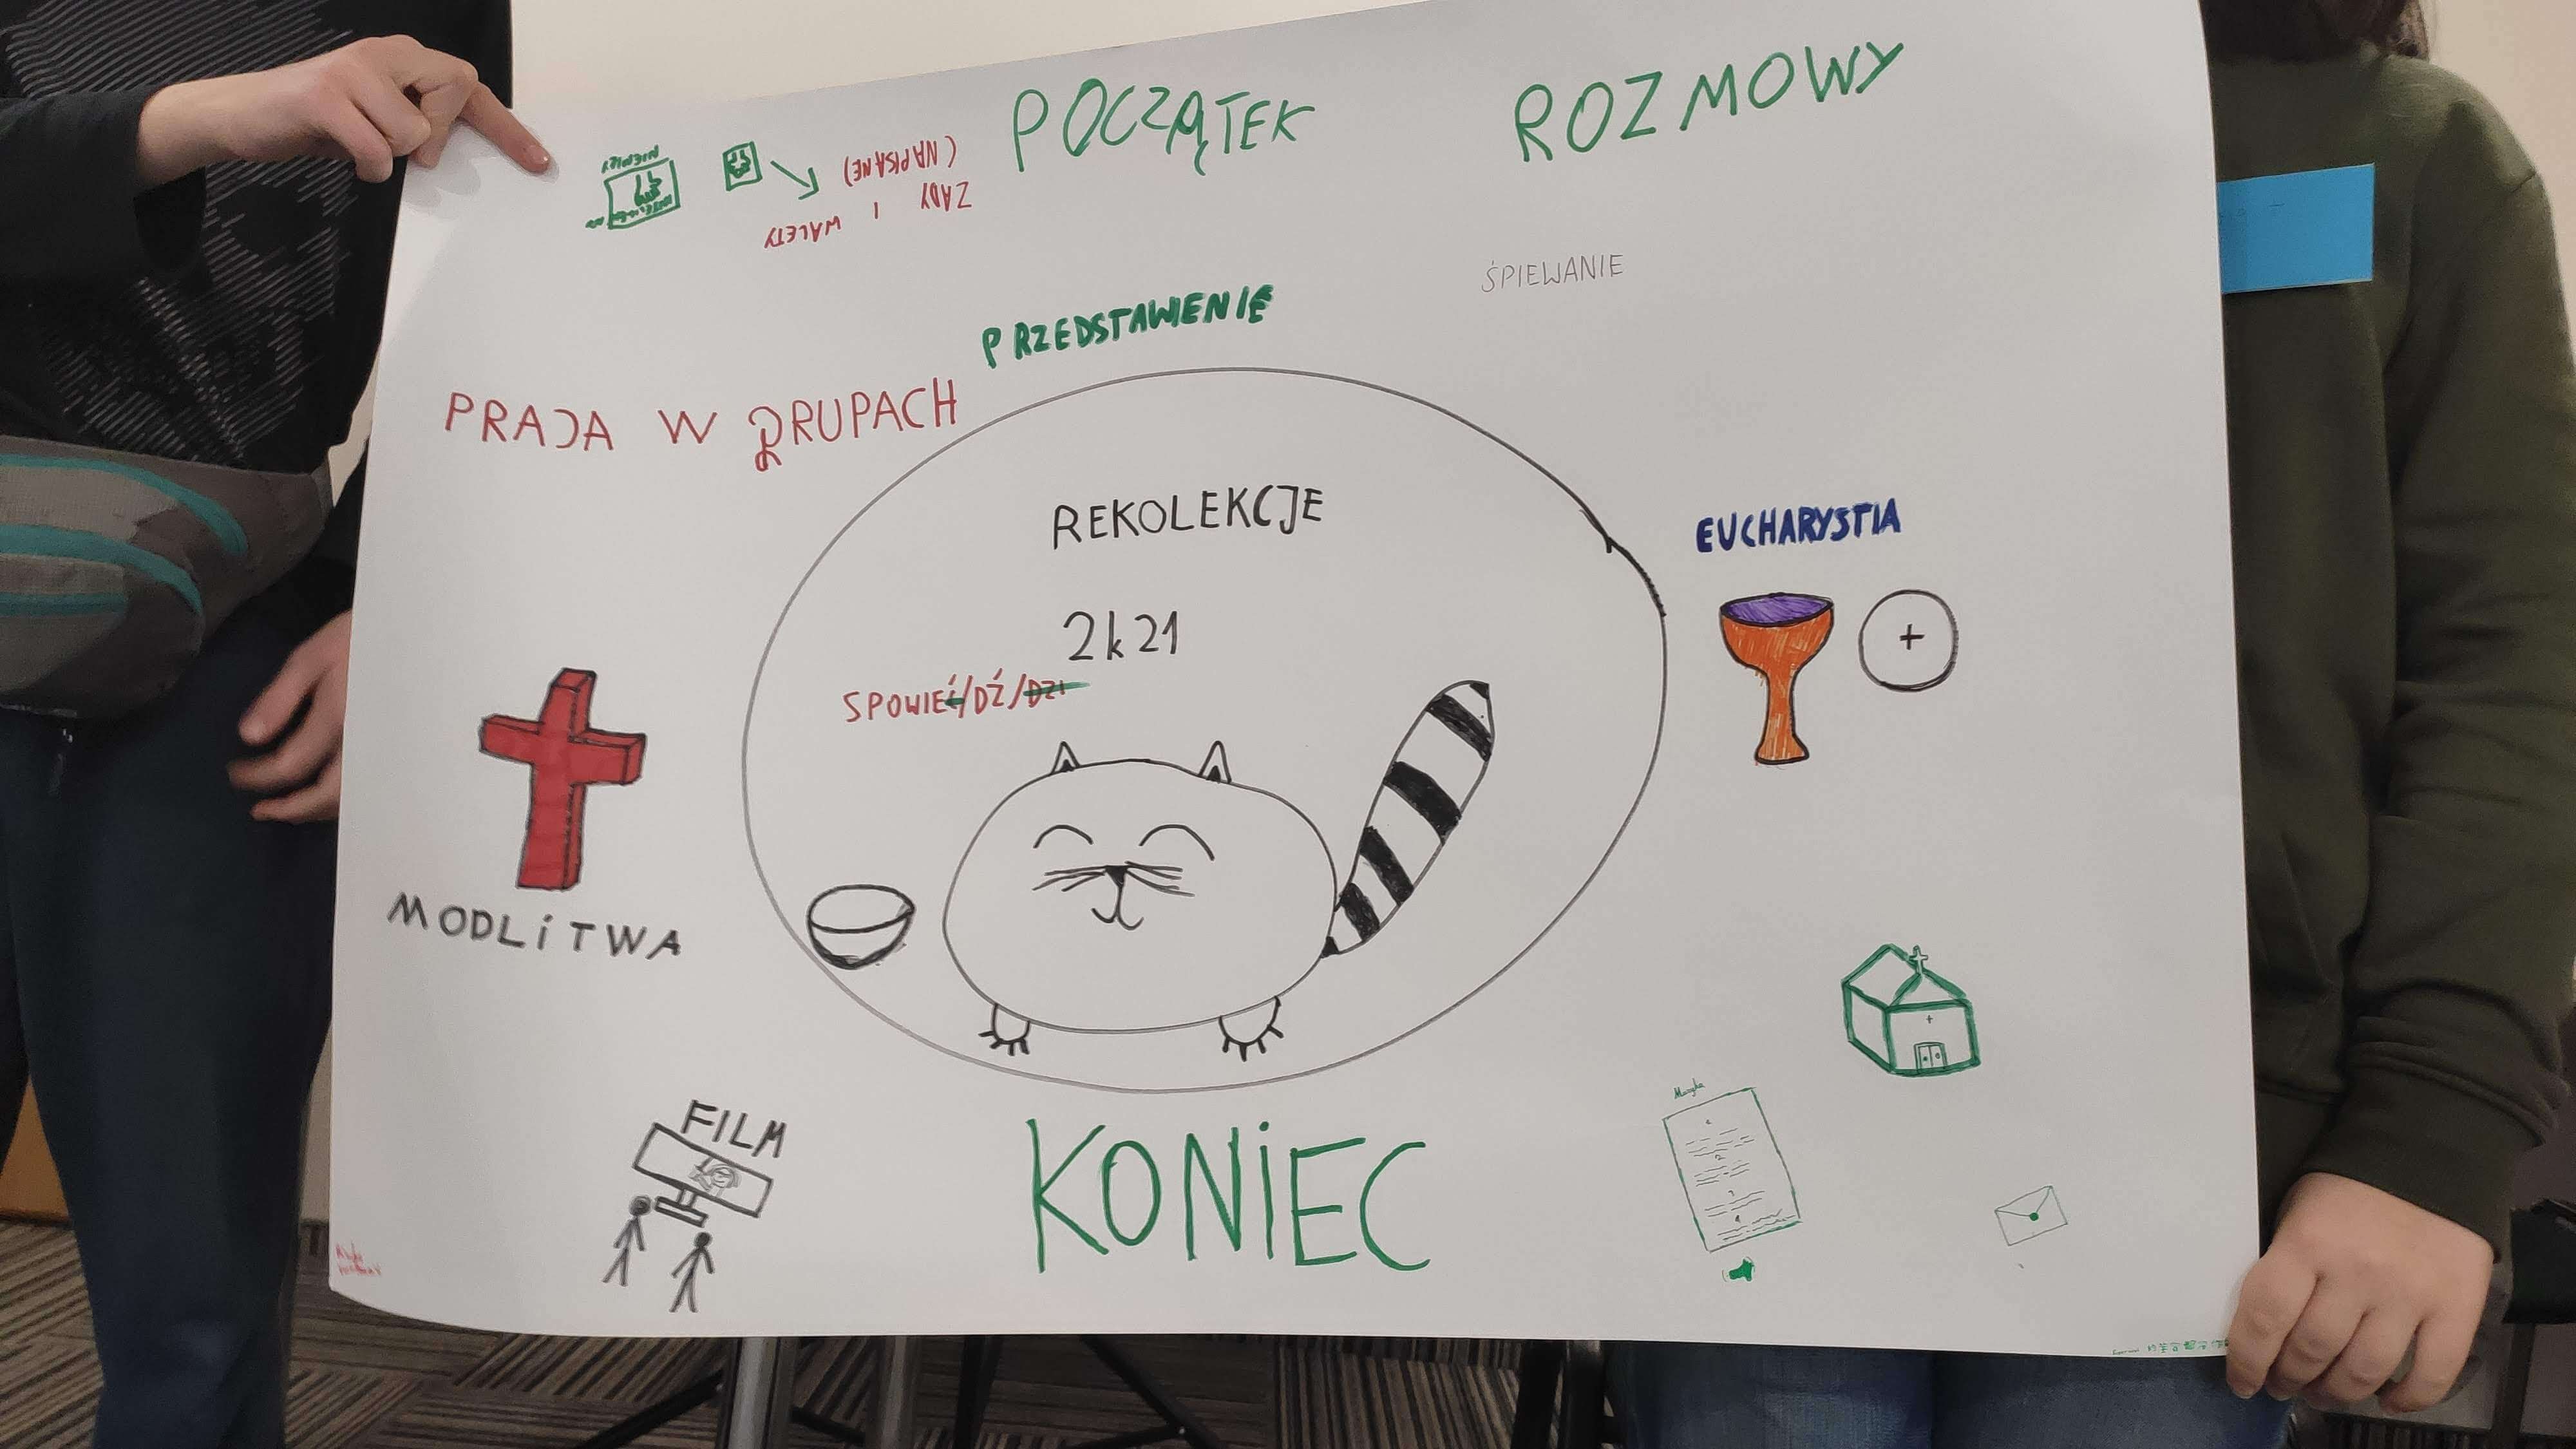 POCZĄTEK
ROZMOWY
(NAPISANE)
ZADY I WALETY
ŚPIEWANIE
PRZEDSTAWIENIE
PRACA W GRUPACH
REKOLEKCJE
2k21
SPOWIEĆ/DŹ/DZI
EUCHARYSTIA
MODLiTWA
FILM
KONiEC
Muzyka